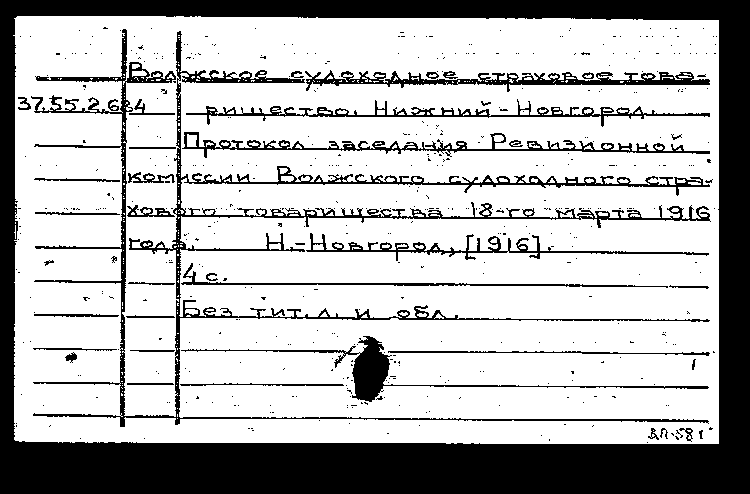 Волжское судоходное страховое това-
37.55.2.684 рищество. Нижний-Новгород.
Протокол заседания Ревизионной
комиссии Волжского судоходного стра-
хового товарищества 18-го марта 1916
года. Н.-Новгород, [1916].
4 с.
Без тит. л. и обл.